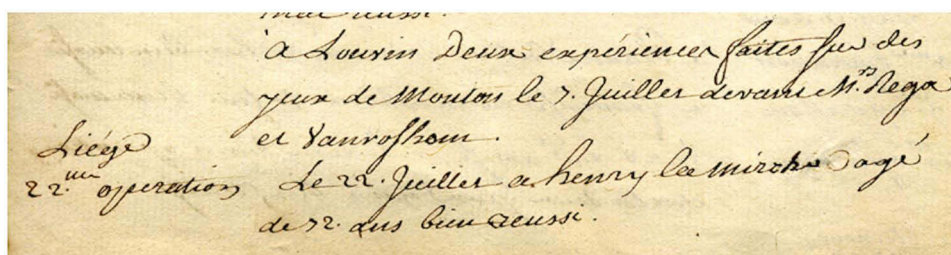 mal reussi.
à Louvin Deux expériences faites sur des
yeux de Mouton le 7. Juillet devant Mrs. Rega
et Vanrossum.
Liége
22.me operation Le 22. Juillet a henry agé
de 72. ans bien reussi.